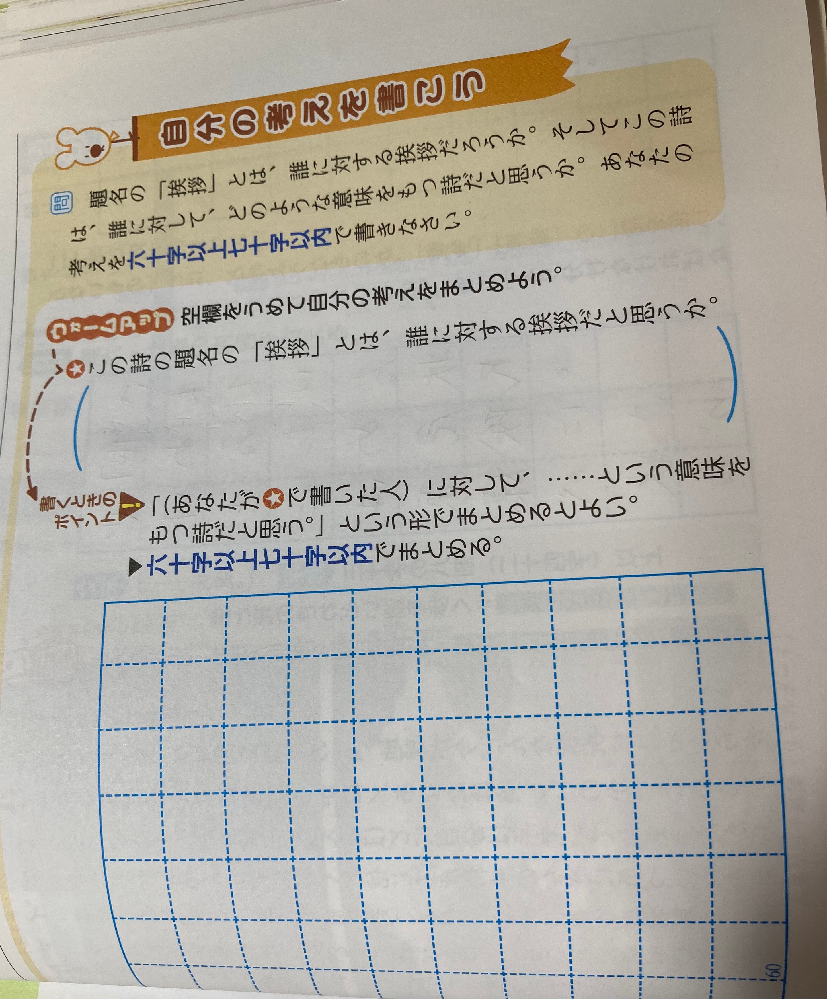 自分の考えを書こう
問 題名の「挨拶」とは、誰に対する挨拶だろうか。そしてこの詩
は、誰に対して、どのような意味をもつ詩だと思うか。あなたの
考えを六十字以上七十字以内で書きなさい。
ウォームアップ 空欄をうめて自分の考えをまとめよう。
★この詩の題名の「挨拶」とは、誰に対する挨拶だと思うか。
書くときの
ポイント
「(あなたが★で書いた人)に対して、……という意味を
もつ詩だと思う。」という形でまとめるとよい。
▶六十字以上七十字以内でまとめる。
60